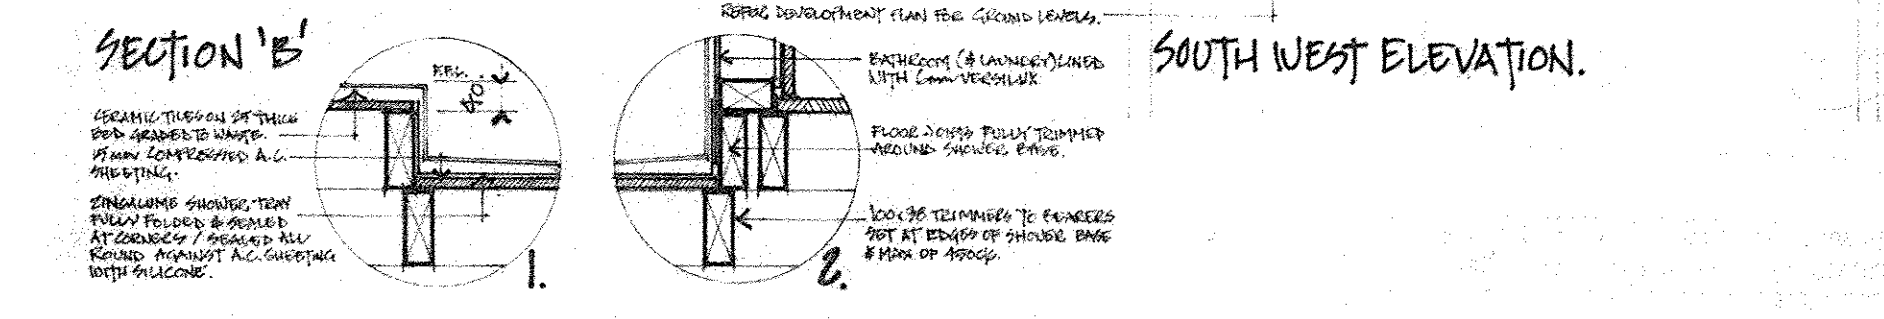 REFER DEVELOPMENT PLAN FOR GROUND LEVELS.
SECTION 'B'
CERAMIC TILES ON 25 THICK
BED GRADED TO WASTE.
15mm COMPRESSED A.C.
SHEETING.
ZINCALUME SHOWER TRAY
FULLY FOLDED & SEALED
AT CORNERS / SEALED ALL
ROUND AGAINST A.C. SHEETING
WITH SILICONE.
F.F.L.
1.
BATHROOM (& LAUNDRY) LINED
WITH 6mm VERSILUX
FLOOR JOISTS FULLY TRIMMED
AROUND SHOWER BASE.
100x38 TRIMMERS TO BEARERS
SET AT EDGES OF SHOWER BASE
& MAX OF 450 %.
2.
SOUTH WEST ELEVATION.